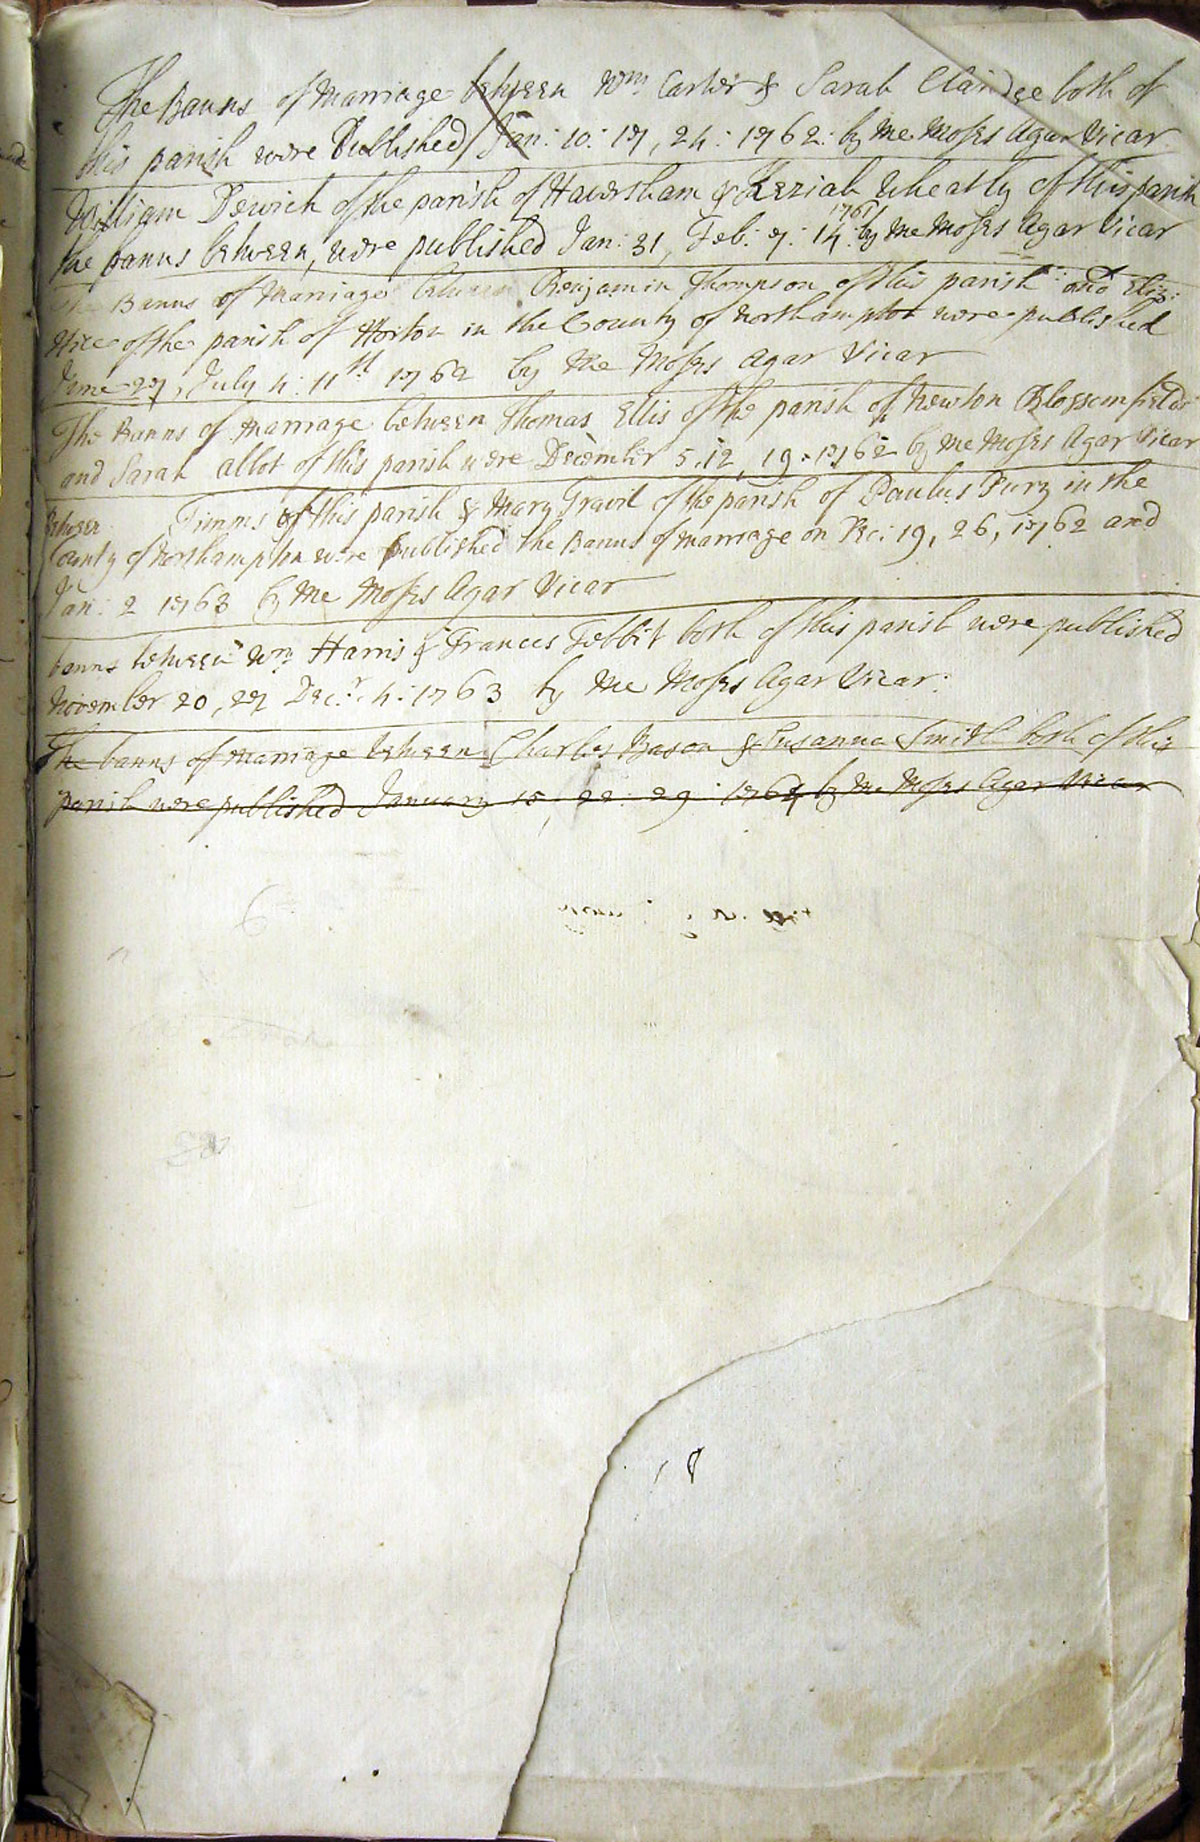 The Banns of Marriage between Wm Carter & Sarah Claridge both of
this parish were Published Jan: 10: 17, 24: 1762: by me Moses Agar Vicar
William Dewick of the parish of Haversham & Keziah Wheatly of this parish
the banns between, were published Jan: 31, Feb: 7: 14: 1761 by me Moses Agar Vicar
The Banns of Marriage between Benjamin Thompson of this parish and Eliz:
of the parish of Horton in the County of Northampton were published
June 27, July 4: 11th 1762 by me Moses Agar Vicar
The Banns of Marriage between Thomas Ellis of the parish of Newton Blossomfield
and Sarah allot of this parish were December 5, 12, 19 - 1762 by me Moses Agar Vicar
Between Timms of this parish & Mary Travil of the parish of Paulus Pury in the
County of Northampton were published the Banns of Marriage on Dec: 19, 26, 1762 and
Jan: 2 1763 by me Moses Agar Vicar
banns between Wm Harris & Frances Tebbit both of this parish were published
November 20, 27 Decr. 4: 1763 by me Moses Agar Vicar:
The banns of Marriage between Charles Bason & Susanna Smith both of this
parish were published January 15, 22: 29: 1764 by me Moses Agar Vicar